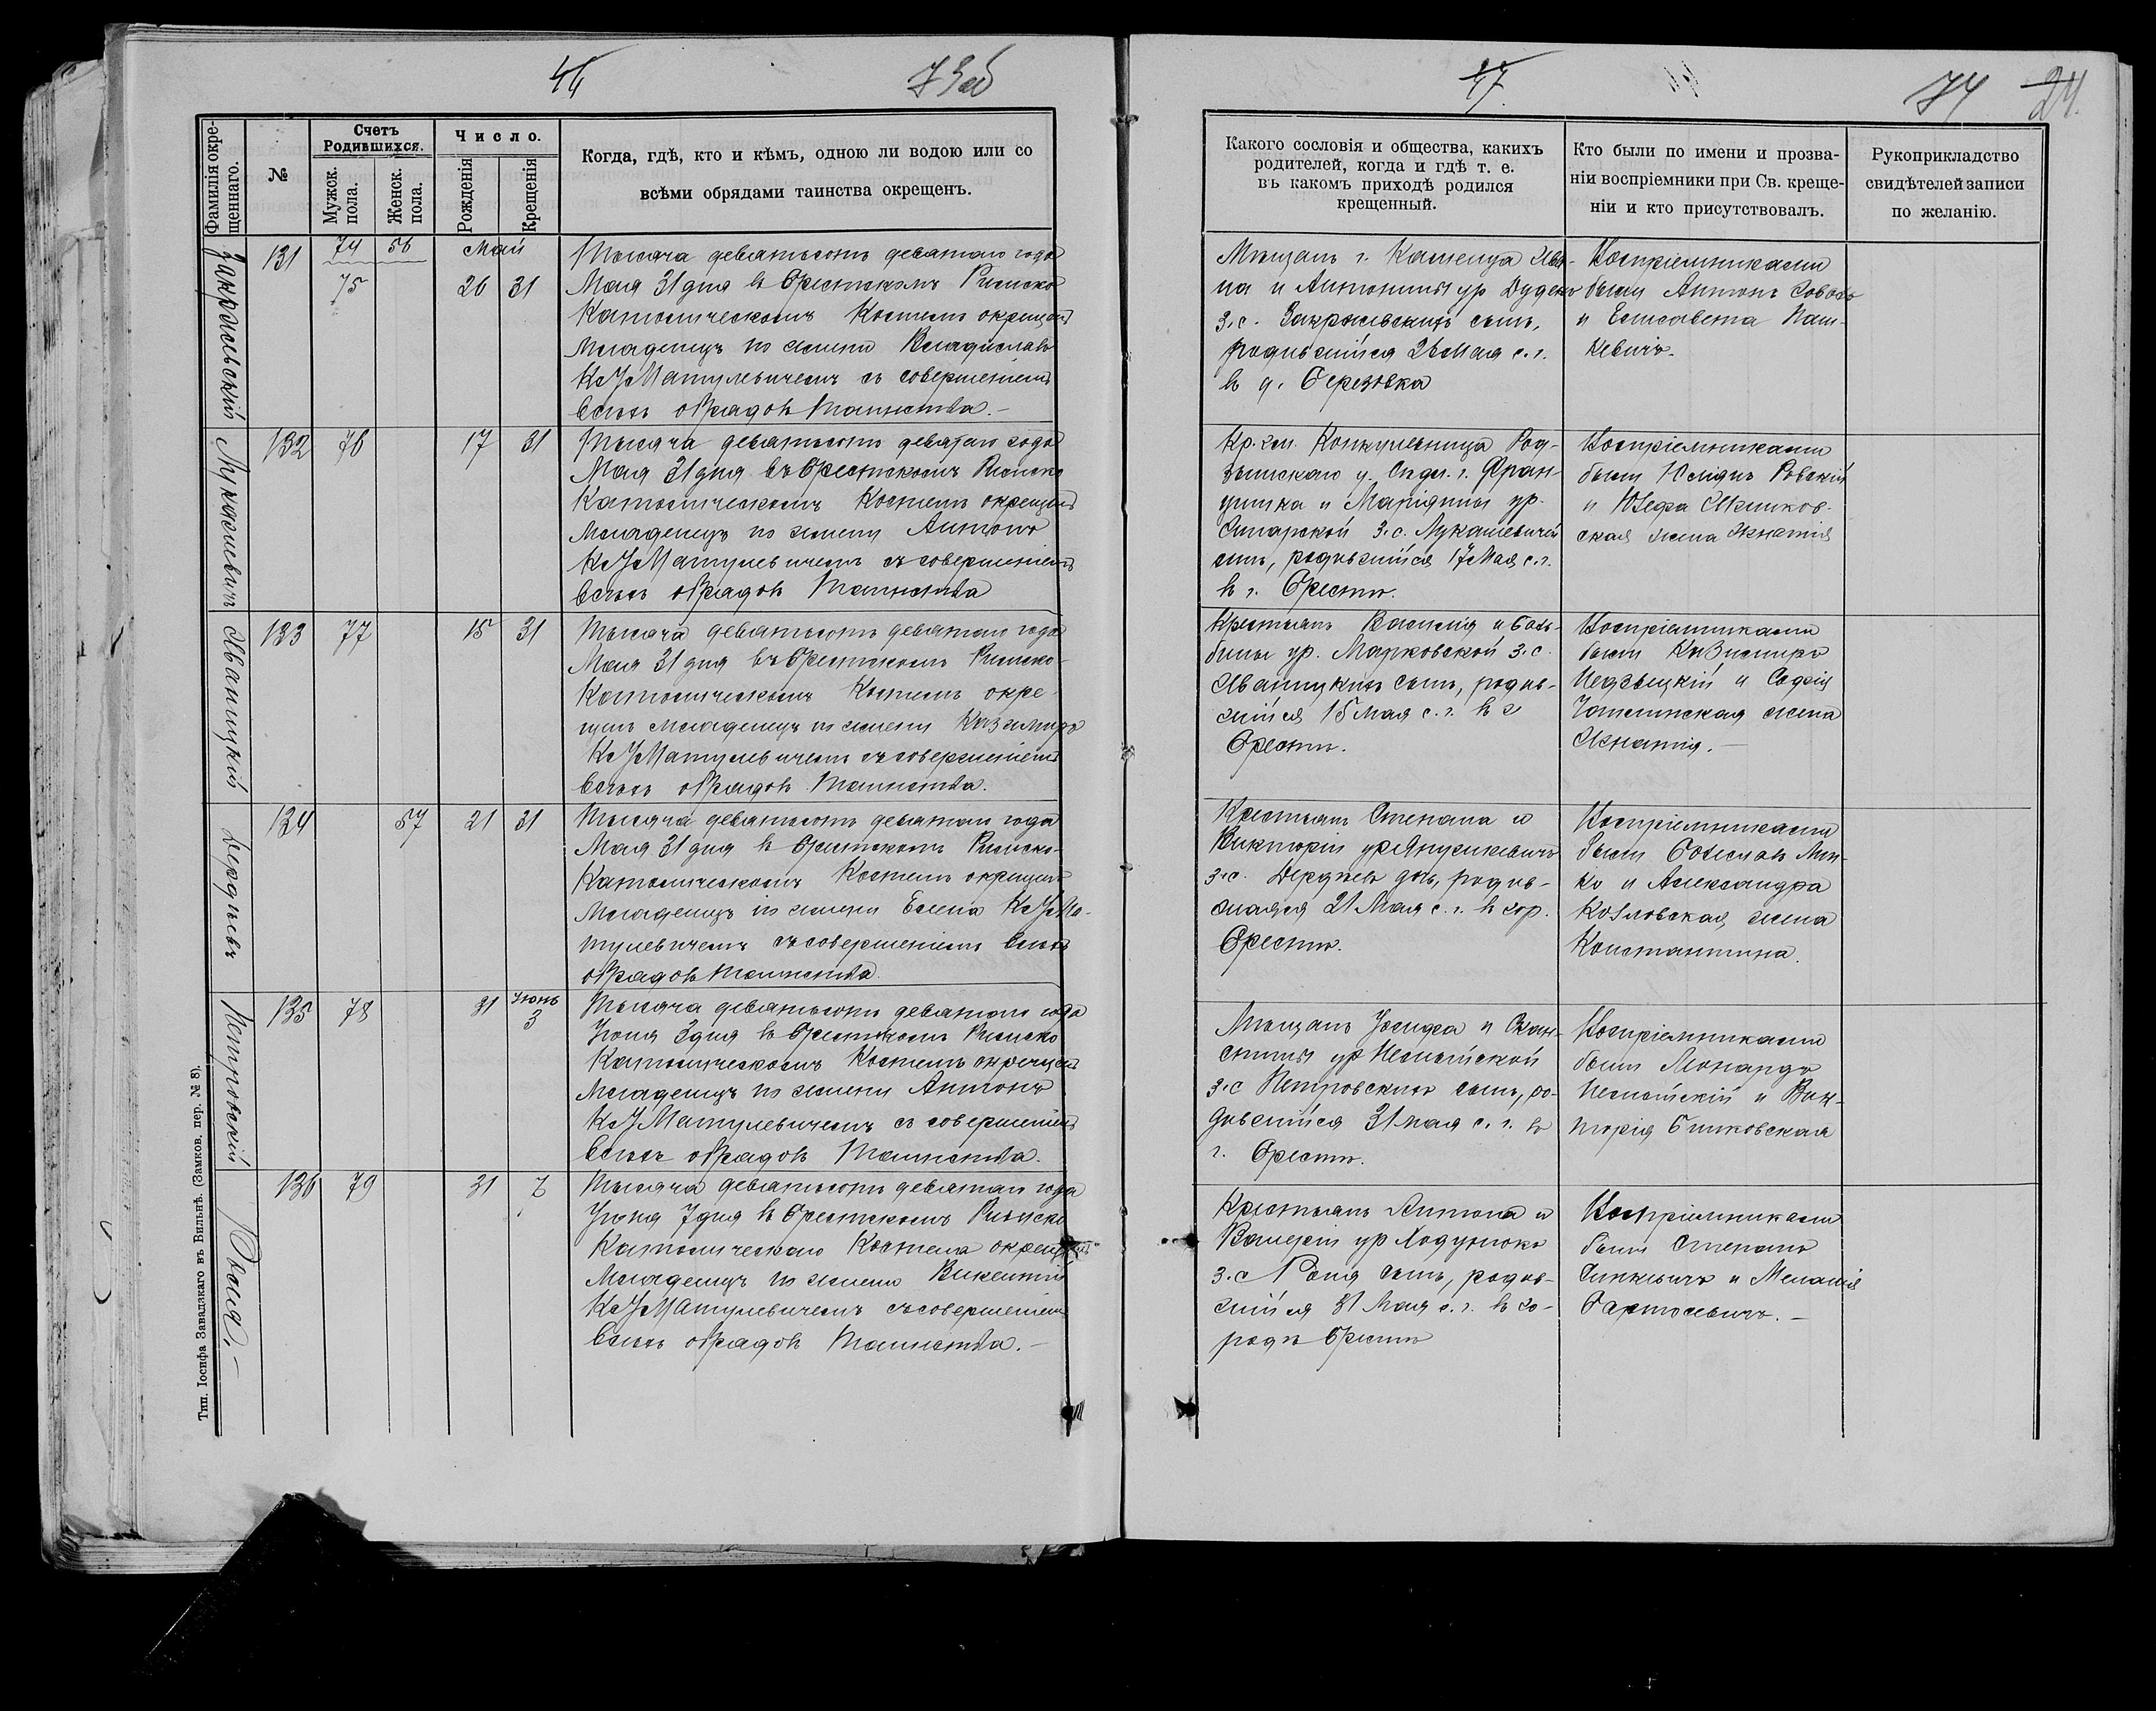 46
73об
Фамилія окре-
щеннаго.
№
Счетъ
Родившихся.
Мужск.
пола.
Женск.
пола.
Число.
Рожденія
Крещенія
Когда, гдѣ, кто и кѣмъ, одною ли водою или со
всѣми обрядами таинства окрещенъ.
131
74 56
75
Май
26 31
Тысяча девятьсотъ девятаго года
Мая 31 дня въ Брестскомъ Римско
Католическомъ Костелѣ окрещенъ
младенецъ по имени Владиславъ
К. І. Матулевичемъ съ совершеніемъ
всѣхъ обрядовъ таинства.-
Лукашевичъ
132
76
17 31
Тысяча девятьсотъ девятаго года
Мая 31 дня въ Брестскомъ Римско
Католическомъ Костелѣ окрещенъ
младенецъ по имени Антонъ
К. І. Матулевичемъ съ совершеніемъ
всѣхъ обрядовъ таинства
Иваницкій
133
77
15 31
Тысяча девятьсотъ девятаго года
Мая 31 дня въ Брестскомъ Римско-
Католическомъ Костелѣ окре-
щенъ младенецъ по имени Казимиръ
К. І. Матулевичемъ съ совершеніемъ
всѣхъ обрядовъ таинства.
Дердѣевъ
134
57
21 31
Тысяча девятьсотъ девятаго года
Мая 31 дня въ Брестскомъ Римско-
Католическомъ Костелѣ окрещенъ
младенецъ по имени Елена К. І. Ма-
тулевичемъ съ совершеніемъ всѣхъ
обрядовъ таинства.
Петровскій
135
78
31
Іюнь
3
Тысяча девятьсотъ девятаго года
Іюня 3 дня въ Брестскомъ Римско
Католическомъ Костелѣ окрещенъ
младенецъ по имени Антонъ
К. І. Матулевичемъ съ совершеніемъ
всѣхъ обрядовъ таинства.
136
79
31 7
Тысяча девятьсотъ девятаго года
Іюня 7 дня въ Брестскомъ Римско
Католическаго Костела окрещенъ
младенецъ по имени Викентій
К. І. Матулевичемъ съ совершеніемъ
всѣхъ обрядовъ таинства.-
Тип. Іосифа Завадзкаго въ Вильнѣ. (Замков. пер. № 8).
47.
74
24.
Какого сословія и общества, какихъ
родителей, когда и гдѣ т. е.
въ какомъ приходѣ родился
крещенный.
Кто были по имени и прозва-
ніи воспріемники при Св. креще-
ніи и кто присутствовалъ.
Рукоприкладство
свидѣтелей записи
по желанію.
Мѣщанъ г. Каменца Ива-
на и Антонины ур
з. с. сынъ,
родившійся 26 Мая с. г.
въ д. Березовка
Воспріемниками
были Антонъ
и Елисавета Паш-
кевичъ.
Кр.
Фран-
цишка и Маріянны ур.
з. с. Лукашевичей
сынъ, родившійся 17 Мая с. г.
въ г. Брестѣ.
Воспріемниками
были Юліянъ Ровскій
и Юзефа
ская жена Игнатія
Крестьянъ Василія и Баль-
бины ур. Марковской з. с.
Иваницкихъ сынъ, родив-
шійся 15 Мая с. г. въ г
Брестѣ.
Воспріемниками
были Казимиръ
Недзвецкій и Софія
жена
Игнатія.-
Крестьянъ Степана и
Викторіи ур Янушкевичъ
з. с. Дердѣевъ дочь, родив-
шаяся 21 Мая с. г. въ гор.
Брестѣ.
Воспріемниками
были Болеславъ
и Александра
Козловская, жена
Константина.
Мѣщанъ Іосифа и
ур
з. с Петровскихъ сынъ, ро-
дившійся 31 мая с. г. въ
г. Брестѣ.
Воспріемниками
были Леонардъ
и Вик-
торія
Крестьянъ Антона и
Валеріи ур Ходунюкъ
з. с сынъ, родив-
шійся 31 Мая с. г. въ го-
родѣ Брестѣ
Воспріемниками
были Степанъ
и Меланія
Бартосевичъ.-